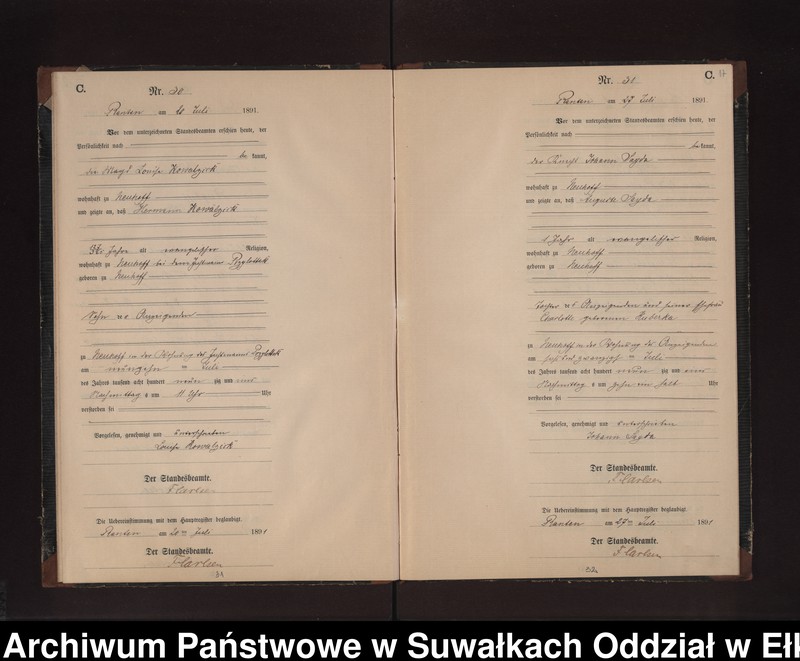 C.
Nr. 30
Ranten am 20 Juli 1891
Vor dem unterzeichneten Standesbeamten erschien heute, der
Persönlichkeit nach
be kannt,
die Magd Louise Kowalzick
wohnhaft zu Neuhoff
und zeigte an, daß Hermann Kowalzick
Jahr alt evangelischer Religion,
wohnhaft zu Neuhoff bei dem
geboren zu Neuhoff
Sohn der Anzeigenden
zu Neuhoff in der Wohnung des
am neunzehn ten Juli
des Jahres tausend acht hundert neun zig und eins
Nachmittags um 11 Uhr Uhr
verstorben sei
Vorgelesen, genehmigt und unterschrieben
Louise Kowalzick
Der Standesbeamte.
Die Uebereinstimmung mit dem Hauptregister beglaubigt.
Ranten am 20ten Juli 1891
Der Standesbeamte.
31
C.
Nr. 31
Ranten am 27 Juli 1891
Vor dem unterzeichneten Standesbeamten erschien heute, der
Persönlichkeit nach
be kannt,
der Johann Sayda
wohnhaft zu Neuhoff
und zeigte an, daß Auguste Sayda
1 Jahr alt evangelischer Religion,
wohnhaft zu Neuhoff
geboren zu Neuhoff
Tochter des Anzeigenden und seiner Ehefrau
Charlotte geborenen
zu Neuhoff in der Wohnung des Anzeigenden
am sechs und zwanzig ten Juli
des Jahres tausend acht hundert neun zig und eins
Nachmittag s um zehn ein halb Uhr
verstorben sei
Vorgelesen, genehmigt und unterschrieben
Johann Sayda
Der Standesbeamte.
Die Uebereinstimmung mit dem Hauptregister beglaubigt.
Ranten am 27ten Juli 1891
Der Standesbeamte.
Archiwum Państwowe w Suwałkach Oddział w Ełk